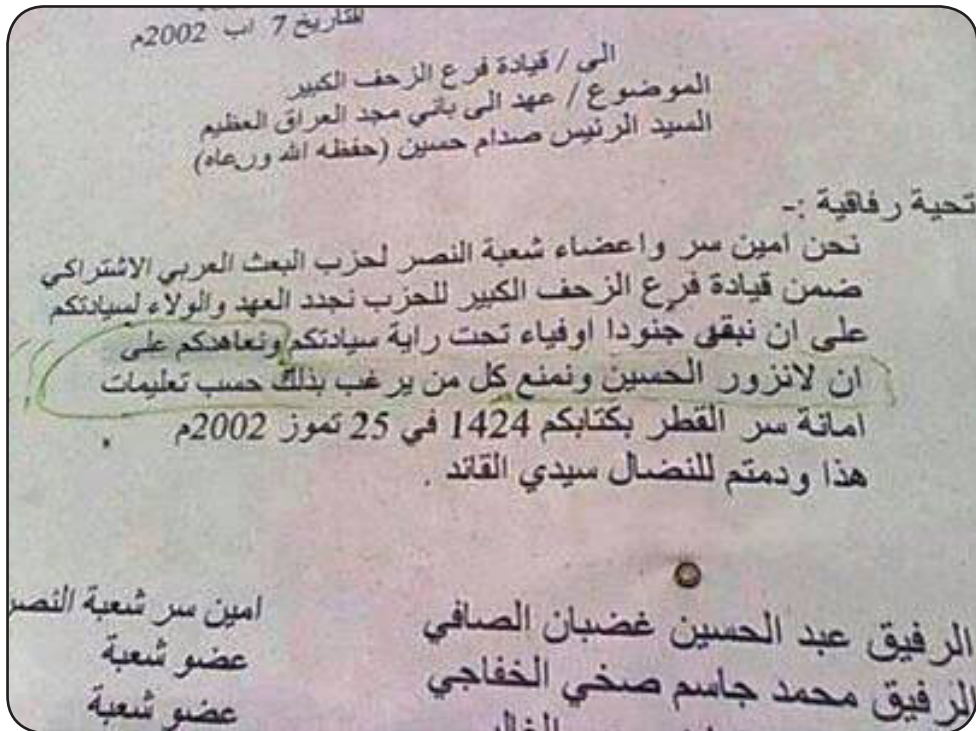 التاريخ 7 اب 2002م
الى / قيادة فرع الزحف الكبير
الموضوع / عهد الى باني مجد العراق العظيم
السيد الرئيس صدام حسين (حفظه الله ورعاه)
تحية رفاقية :-
نحن امين سر واعضاء شعبة النصر لحزب البعث العربي الاشتراكي
ضمن قيادة فرع الزحف الكبير للحزب نجدد العهد والولاء لسيادتكم
على ان نبقى جنودا اوفياء تحت راية سيادتكم ونعاهدكم على
ان لانزور الحسين ونمنع كل من يرغب بذلك حسب تعليمات
امانة سر القطر بكتابكم 1424 في 25 تموز 2002م
هذا ودمتم للنضال سيدي القائد .
الرفيق عبد الحسين غضبان الصافي امين سر شعبة النصر
الرفيق محمد جاسم صخي الخفاجي عضو شعبة
عضو شعبة